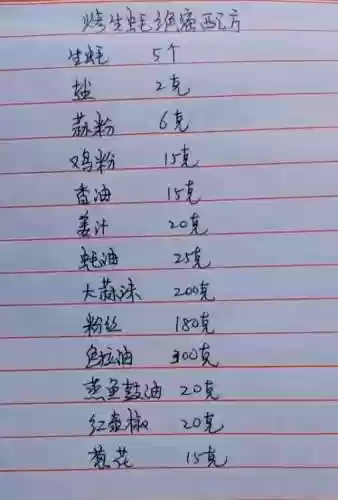 烤生蚝绝密配方
生蚝 5个
盐 2克
蒜粉 6克
鸡粉 15克
香油 15克
姜汁 20克
蚝油 25克
大蒜沫 200克
粉丝 180克
色拉油 300克
蒸鱼鼓油 20克
红壶椒 20克
葱花 15克